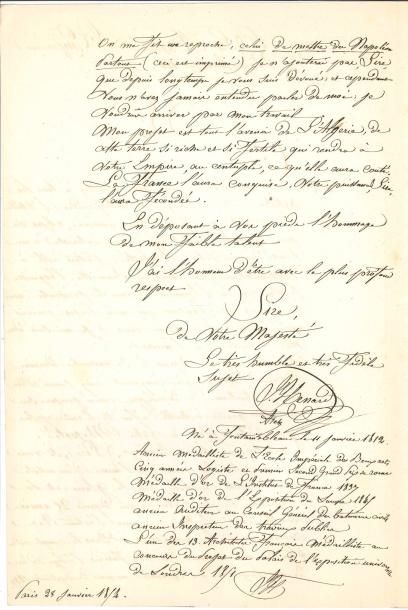 On me fait un reproche, celui de mettre du Napoléon
partout (ceci est imprimé) je n'ajouterai pas Sire
que depuis longtemps je vous suis dévoué, et cependant
vous n'avez jamais entendu parler de moi; je
voudrais arriver par mon travail
Mon projet est tout l'avenir de l'Algérie, de
cette terre si riche et si fertile qui rendra à
Votre Empire au centuple, ce qu'elle aura couté.
La France l'aura conquise, Votre puissance, Sire,
l'aura fécondée.
En déposant à vos pieds l'hommage
de mon faible talent
J'ai l'honneur d'être avec le plus profond
respect
Sire,
de Votre Majesté
Le très humble et très fidèle
Sujet
Né à Fontainebleau le 11 janvier 1812
Ancien médailliste de l'Ecole Impériale des Beaux arts
Cinq années logiste ce dernier Second Grand Prix de rome
Médaille d'or de l'Institut de France 1837
Médaille d'or de l'Exposition de
ancien Auditeur au Conseil Général des batiments civils
ancien Inspecteur des travaux publics
L'un des 13 Architectes Français Médaillistes au
concours du Projet du palais de l'exposition universelle
de Londres
Paris 28 janvier